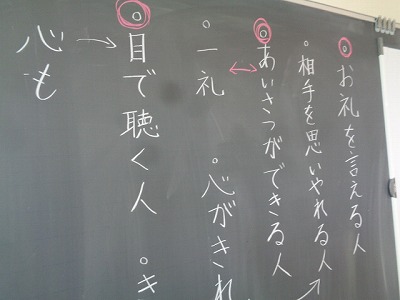 。お礼を言える人
。相手を思いやれる人
。あいさつができる人
。一礼 。心がきれ
。目で聴く人 。き
心も